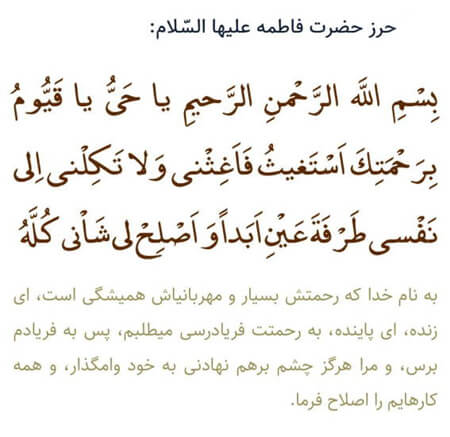 حرز حضرت فاطمه علیها السّلام:
بِسْمِ اللَّهِ الرَّحْمنِ الرَّحیمِ یا حَیُّ یا قَیُّومُ
بِرَحْمَتِكَ اَسْتَغیثُ فَاَغِثْنی وَلا تَكِلْنی اِلی
نَفْسی طَرْفَةَ عَیْنٍ اَبَداً وَ اَصْلِحْ لی شَاْنی كُلَّهُ
به نام خدا که رحمتش بسیار و مهربانی‌اش همیشگی است، ای
زنده، ای پاینده، به رحمتت فریادرسی میطلبم، پس به فریادم
برس، و مرا هرگز چشم برهم نهادنی به خود وامگذار، و همه
کارهایم را اصلاح فرما.